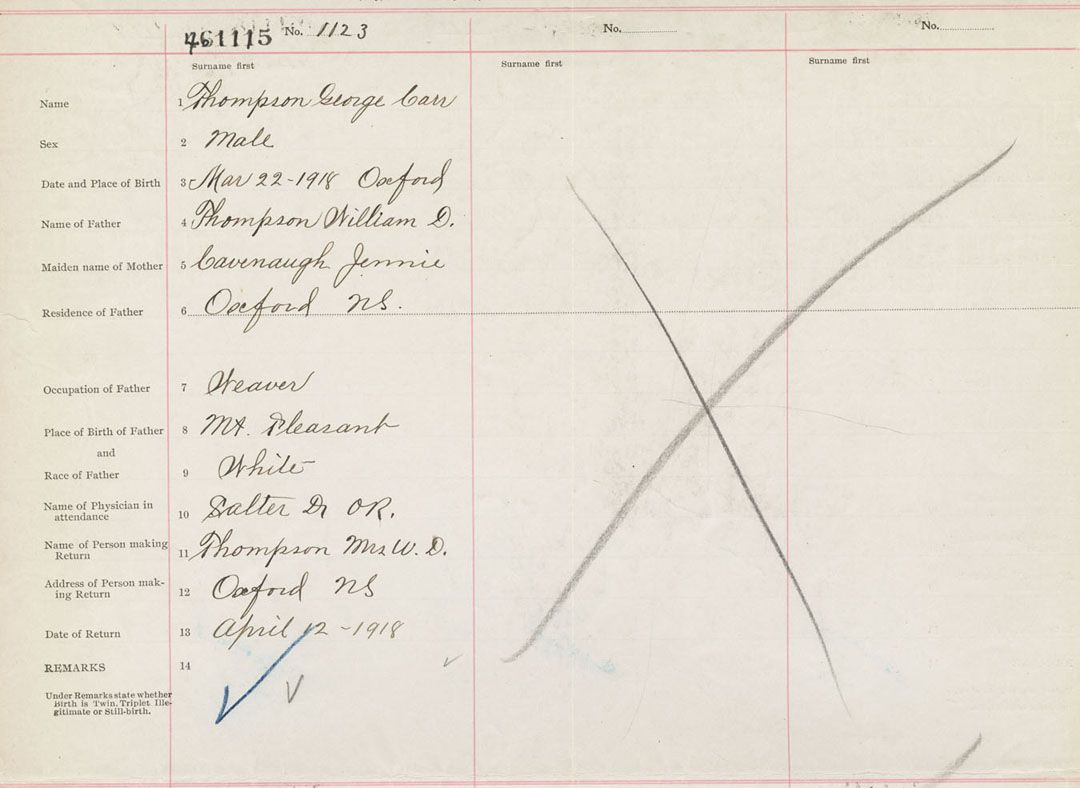 461115 No. 1123 No. No.
Surname first Surname first Surname first
Name 1 Thompson George Carr
Sex 2 Male
Date and Place of Birth 3 Mar 22-1918 Oxford
Name of Father 4 Thompson William D.
Maiden name of Mother 5 Cavenaugh Jennie
Residence of Father 6 Oxford NS.
Occupation of Father 7 Weaver
Place of Birth of Father 8 Mt. Pleasant
and
Race of Father 9 White
Name of Physician in
attendance 10 Salter Dr OR.
Name of Person making
Return 11 Thompson Mrs W. D.
Address of Person mak-
ing Return 12 Oxford NS
Date of Return 13 April 12-1918
REMARKS 14
Under Remarks state whether
Birth is Twin, Triplet Ille-
gitimate or Still-birth.